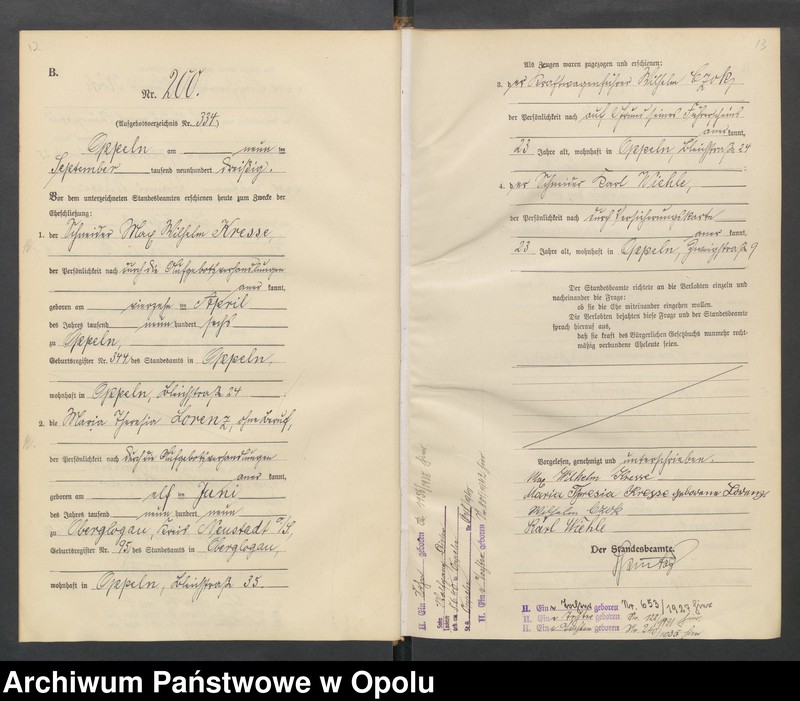 12
B.
Nr. 200.
(Aufgebotsverzeichnis Nr. 334)
Oppeln am neun im
September tausend neunhundert dreißig.
Vor dem unterzeichneten Standesbeamten erschienen heute zum Zwecke der
Eheschließung:
1. der Schneider Max Wilhelm Kresse,
der Persönlichkeit nach durch die Aufgebotsverhandlungen
aner kannt,
geboren am vierzehn im April
des Jahres tausend neun hundert sechs
zu Oppeln,
Geburtsregister Nr. 344 des Standesamts in Oppeln,
wohnhaft in Oppeln, Bleichstraße 24
2. die Maria Theresia Lorenz, ohne Beruf,
der Persönlichkeit nach durch die Aufgebotsverhandlungen
aner kannt,
geboren am elf im Juni
des Jahres tausend neun hundert neun
zu Oberglogau, Kreis Neustadt O/S,
Geburtsregister Nr. 95 des Standesamts in Oberglogau,
wohnhaft in Oppeln, Bleichstraße 35.
13
Als Zeugen waren zugezogen und erschienen:
3. der Kraftwagenführer Wilhelm Czok,
der Persönlichkeit nach auf Grund seines Führerscheins
aner kannt,
23 Jahre alt, wohnhaft in Oppeln, Bleichstraße 24
4. der Schneider Karl Wiehle,
der Persönlichkeit nach durch Versicherungskarte
aner kannt,
23 Jahre alt, wohnhaft in Oppeln, Zweigstraße 9
Der Standesbeamte richtete an die Verlobten einzeln und
nacheinander die Frage:
ob sie die Ehe miteinander eingehen wollen.
Die Verlobten bejahten diese Frage und der Standesbeamte
sprach hierauf aus,
daß sie kraft des Bürgerlichen Gesetzbuchs nunmehr recht-
mäßig verbundene Eheleute seien.
Vorgelesen, genehmigt und unterschrieben.
Max Wilhelm Kresse
Maria Theresia Kresse geborene Lorenz
Wilhelm Czok
Karl Wiehle
Der Standesbeamte.
II. Ein geboren Nr. 653/1927
II. Eine Tochter geboren Nr.
II. Eine Tochter geboren Nr.
II. Ein geboren
II. Eine Tochter geboren
Archiwum Państwowe w Opolu